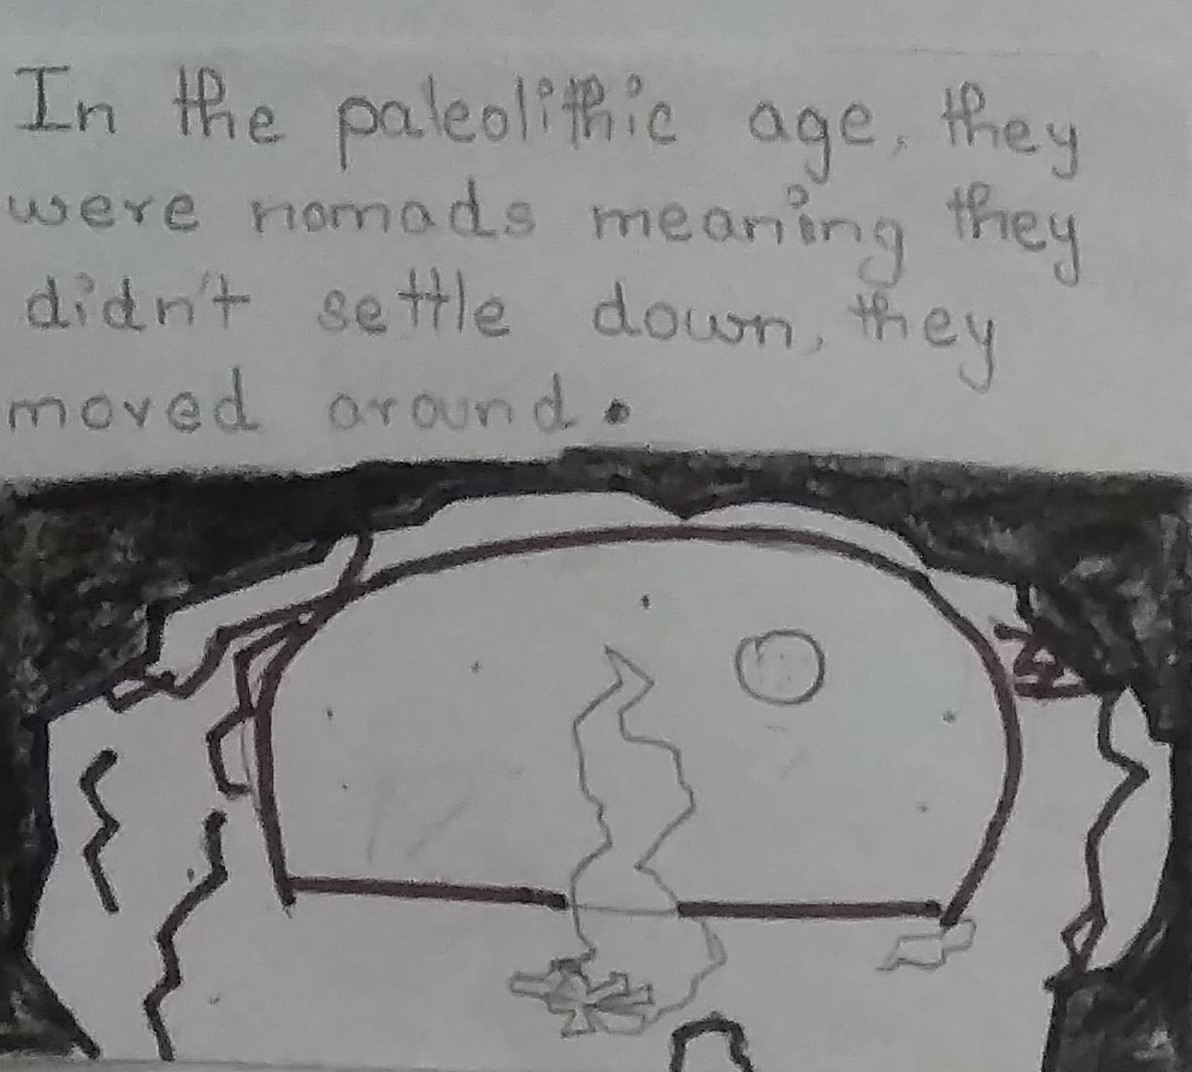 In the paleolithic age, they
were nomads meaning they
didn't settle down, they
moved around.